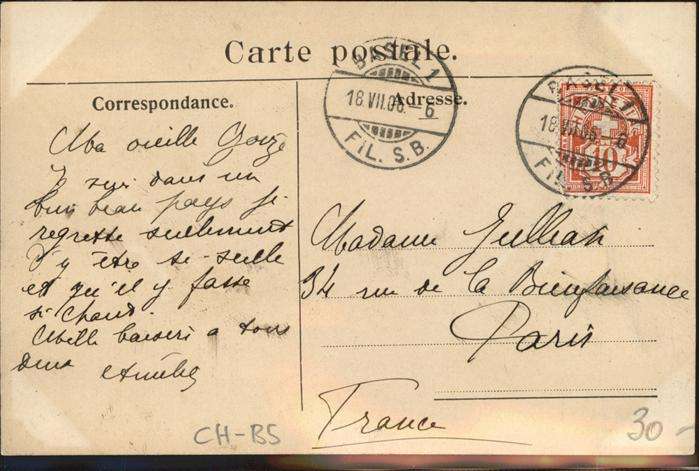 Carte postale.
BASEL 1
18.VII.06.-6
FIL. S.B.
BASEL 1
18.VII.06.-6
FIL. S.B.
10
Correspondance.
Adresse.
Ma vieille
J suis dans un
bien beau pays je
regrette seulement
d'y être si seule
et qu'il y fasse
si chaud.
Mille baisers a tous
deux
Madame
34 rue de la Bienfaisance
Paris
France
CH-BS
30-